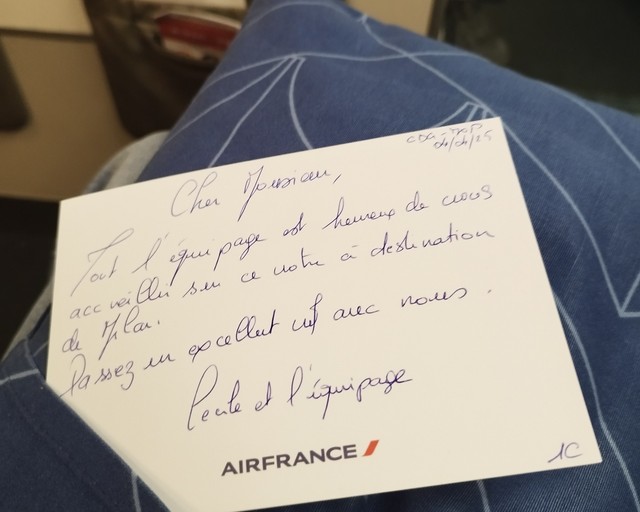 CDG-MXP
04/04/25
Cher Monsieur,
Tout l'équipage est heureux de vous
accueillir sur ce notre à destination
de Milan.
Passez un excellent vol avec nous.
Cécile et l'équipage
AIRFRANCE
1C